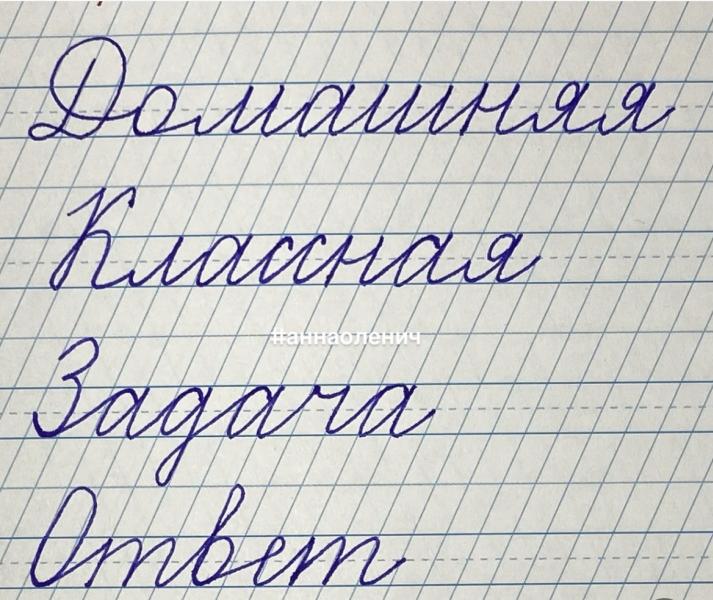 Домашняя
Классная
#аннаоленич
Задача
Ответ